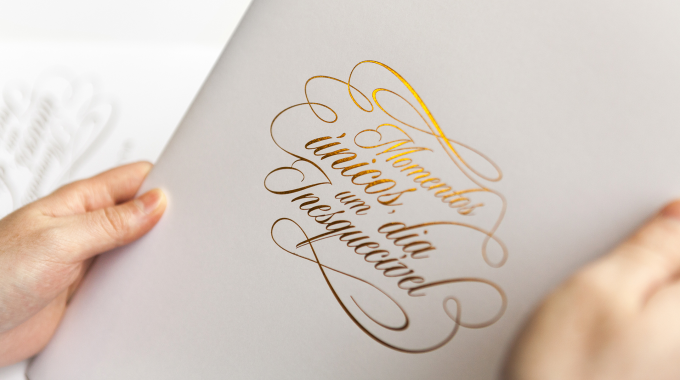 Momentos
únicos, dia
um
Inesquecível